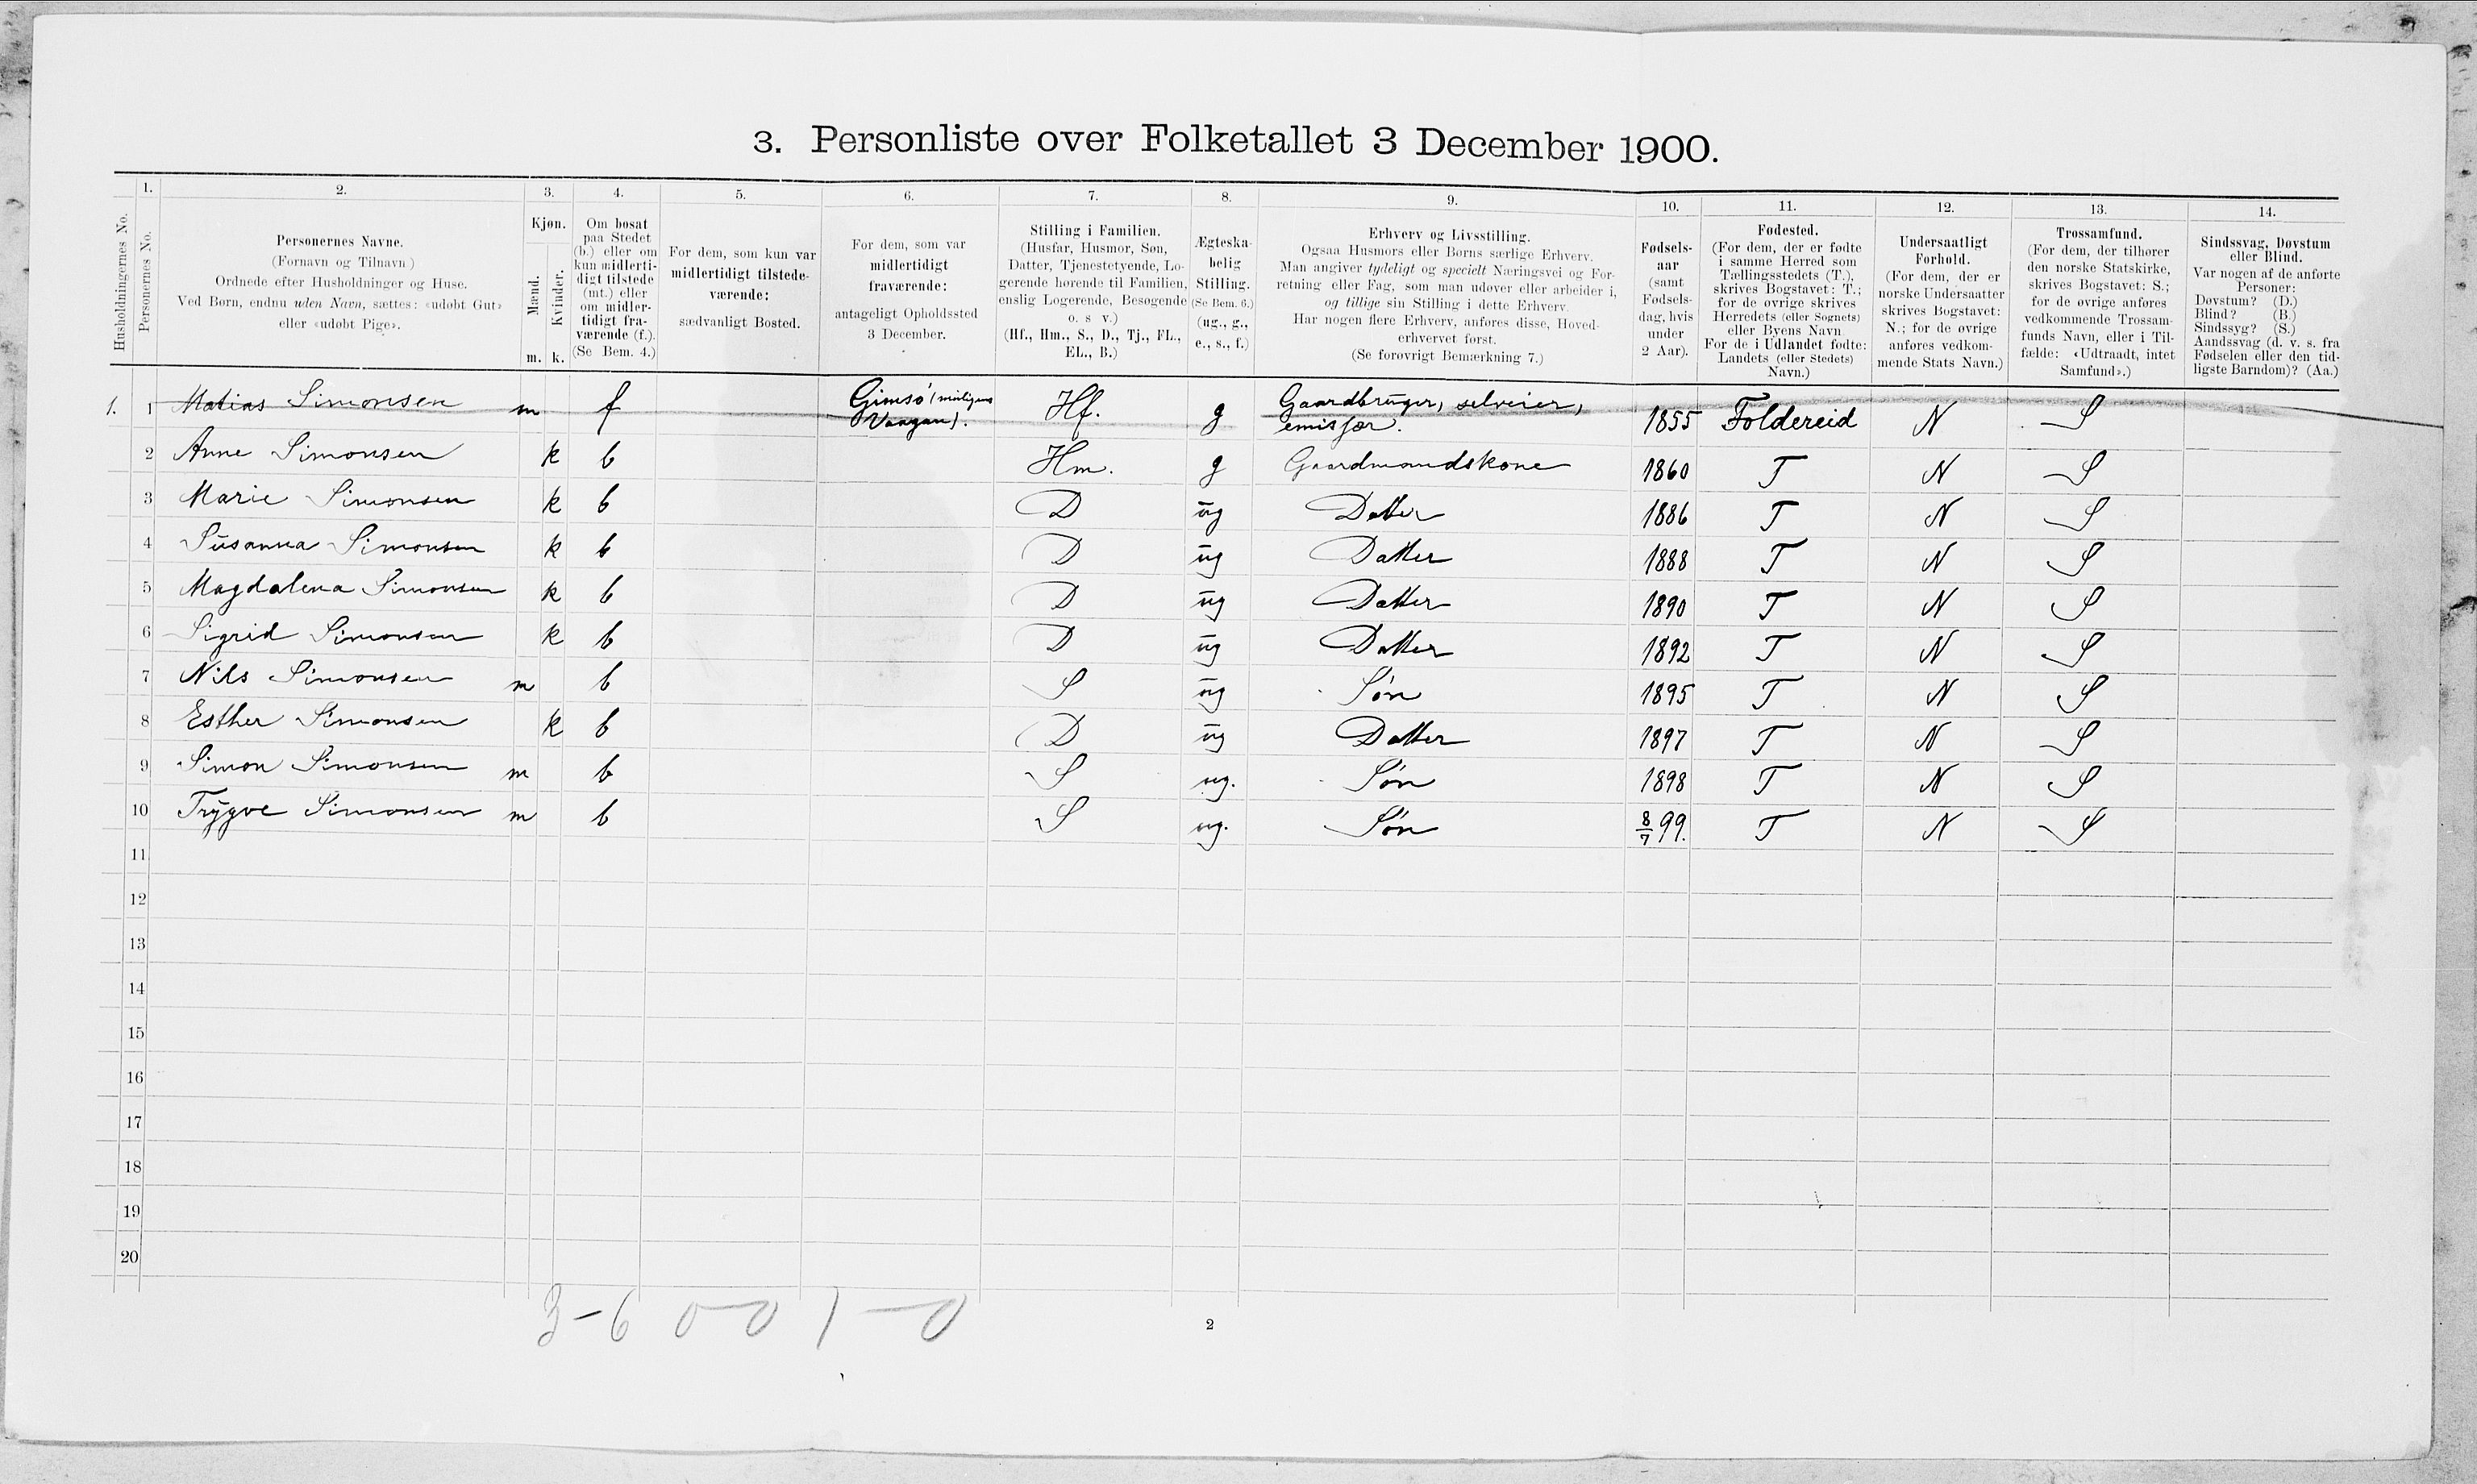 3. Personliste over Folketallet 3 December 1900.
1. 2. 3. 4. 5. 6. 7. 8. 9. 10. 11. 12. 13. 14.
Husholdningernes No.
Personernes No.
Personernes Navne.
(Fornavn og Tilnavn)
Ordnede efter Husholdninger og Huse.
Ved Børn, endnu uden Navn, sættes: «udøbt Gut»
eller «udøbt Pige».
Kjøn.
Mænd.
Kvinder.
m. k.
Om bosat
paa Stedet
(b.) eller om
kun midlerti-
digt tilstede
(mt.) eller
om midler-
tidigt fra-
værende (f.).
(Se Bem. 4.)
For dem, som kun var
midlertidigt tilstede-
værende:
sædvanligt Bosted.
For dem, som var
midlertidigt
fraværende:
antageligt Opholdssted
3 December.
Stilling i Familien.
(Husfar, Husmor, Søn,
Datter, Tjenestetyende, Lo-
gerende hørende til Familien,
enslig Logerende, Besøgende
o. s v.)
(Hf., Hm., S., D., Tj., FL.,
EL., B.)
Ægteska-
belig
Stilling.
(Se Bem. 6.)
(ug., g.,
e., s., f.)
Erhverv og Livsstilling.
Ogsaa Husmors eller Børns særlige Erhverv.
Man angiver tydeligt og specielt Næringsvei og For-
retning eller Fag, som man udøver eller arbeider i,
og tillige sin Stilling i dette Erhverv.
Har nogen flere Erhverv, anføres disse, Hoved-
erhvervet først.
(Se forøvrigt Bemærkning 7.)
Fødsels-
aar
(samt
Fødsels-
dag, hvis
under
2 Aar).
Fødested.
(For dem, der er fødte
i samme Herred som
Tællingsstedets (T.),
skrives Bogstavet: T.;
for de øvrige skrives
Herredets (eller Sognets)
eller Byens Navn.
For de i Udlandet fødte:
Landets (eller Stedets)
Navn.)
Undersaatligt
Forhold.
(For dem, der er
norske Undersaatter
skrives Bogstavet:
N.; for de øvrige
anføres vedkom-
mende Stats Navn.)
Trossamfund.
(For dem, der tilhører
den norske Statskirke,
skrives Bogstavet: S.;
for de øvrige anføres
vedkommende Trossam-
funds Navn, eller i Til-
fælde: «Udtraadt, intet
Samfund».)
Sindssvag, Døvstum
eller Blind.
Var nogen af de anførte
Personer:
Døvstum? (D.)
Blind? (B.)
Sindssyg? (S.)
Aandssvag (d. v. s. fra
Fødselen eller den tid-
ligste Barndom)? (Aa.)
1. 1 Matias Simonsen m f Gimsö (muligens Vaagan). Hf. g Gaardbruger, selveier, emisjær. 1855 Foldereid N S
2 Anne Simonsen k b Hm. g Gaardmandskone 1860 T N S
3 Marie Simonsen k b D ug Datter 1886 T N S
4 Susanna Simonsen k b D ug Datter 1888 T N S
5 Magdalena Simonsen k b D ug Datter 1890 T N S
6 Sigrid Simonsen k b D ug Datter 1892 T N S
7 Nils Simonsen m b S ug Søn 1895 T N S
8 Esther Simonsen k b D ug Datter 1897 T N S
9 Simon Simonsen m b S ug. Søn 1898 T N S
10 Trygve Simonsen m b S ug. Søn 8/7 99. T N S
11
12
13
14
15
16
17
18
19
20
3-6 0-0 1-0
2